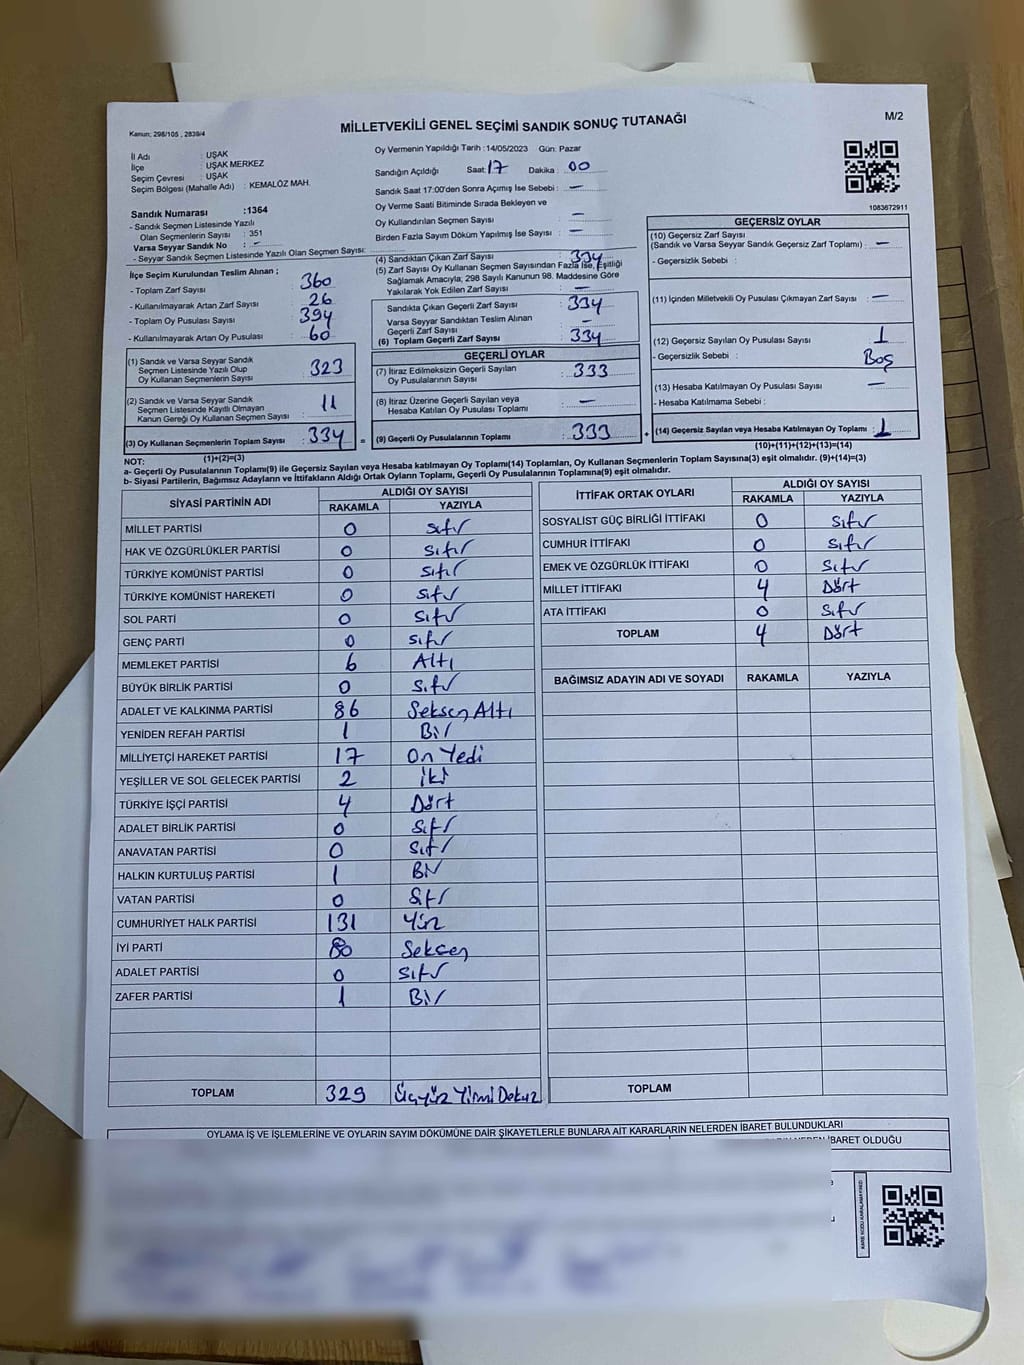 Kanun; 298/105 , 2839/4
MİLLETVEKİLİ GENEL SEÇİMİ SANDIK SONUÇ TUTANAĞI
M/2
İl Adı : UŞAK
İlçe : UŞAK MERKEZ
Seçim Çevresi : UŞAK
Seçim Bölgesi (Mahalle Adı) : KEMALÖZ MAH.
Sandık Numarası :1364
- Sandık Seçmen Listesinde Yazılı
Olan Seçmenlerin Sayısı : 351
Varsa Seyyar Sandık No : -
- Seyyar Sandık Seçmen Listesinde Yazılı Olan Seçmen Sayısı:
İlçe Seçim Kurulundan Teslim Alınan ;
- Toplam Zarf Sayısı : 360
- Kullanılmayarak Artan Zarf Sayısı : 26
- Toplam Oy Pusulası Sayısı : 394
- Kullanılmayarak Artan Oy Pusulası : 60
(1) Sandık ve Varsa Seyyar Sandık
Seçmen Listesinde Yazılı Olup
Oy Kullanan Seçmenlerin Sayısı : 323
(2) Sandık ve Varsa Seyyar Sandık
Seçmen Listesinde Kayıtlı Olmayan
Kanun Gereği Oy Kullanan Seçmen Sayısı : 11
(3) Oy Kullanan Seçmenlerin Toplam Sayısı : 334
(1)+(2)=(3)
Oy Vermenin Yapıldığı Tarih :14/05/2023 Gün: Pazar
Sandığın Açıldığı Saat: 17 Dakika : 00
Sandık Saat 17:00'den Sonra Açımış İse Sebebi : -
Oy Verme Saati Bitiminde Sırada Bekleyen ve
Oy Kullandırılan Seçmen Sayısı : -
Birden Fazla Sayım Döküm Yapılmış İse Sayısı : -
(4) Sandıktan Çıkan Zarf Sayısı : 334
(5) Zarf Sayısı Oy Kullanan Seçmen Sayısından Fazla İse, Eşitliği
Sağlamak Amacıyla; 298 Sayılı Kanunun 98. Maddesine Göre
Yakılarak Yok Edilen Zarf Sayısı : -
Sandıkta Çıkan Geçerli Zarf Sayısı : 334
Varsa Seyyar Sandıktan Teslim Alınan
Geçerli Zarf Sayısı : -
(6) Toplam Geçerli Zarf Sayısı : 334
GEÇERLİ OYLAR
(7) İtiraz Edilmeksizin Geçerli Sayılan
Oy Pusulalarının Sayısı : 333
(8) İtiraz Üzerine Geçerli Sayılan veya
Hesaba Katılan Oy Pusulası Toplamı : -
= (9) Geçerli Oy Pusulalarının Toplamı : 333
1083672911
GEÇERSİZ OYLAR
(10) Geçersiz Zarf Sayısı
(Sandık ve Varsa Seyyar Sandık Geçersiz Zarf Toplamı) : -
- Geçersizlik Sebebi :
(11) İçinden Milletvekili Oy Pusulası Çıkmayan Zarf Sayısı : -
(12) Geçersiz Sayılan Oy Pusulası Sayısı : 1
- Geçersizlik Sebebi : Boş
(13) Hesaba Katılmayan Oy Pusulası Sayısı : -
- Hesaba Katılmama Sebebi :
+ (14) Geçersiz Sayılan veya Hesaba Katılmayan Oy Toplamı : 1
(10)+(11)+(12)+(13)=(14)
NOT:
a- Geçerli Oy Pusulalarının Toplamı(9) ile Geçersiz Sayılan veya Hesaba katılmayan Oy Toplamı(14) Toplamları, Oy Kullanan Seçmenlerin Toplam Sayısına(3) eşit olmalıdır. (9)+(14)=(3)
b- Siyasi Partilerin, Bağımsız Adayların ve İttifakların Aldığı Ortak Oyların Toplamı, Geçerli Oy Pusulalarının Toplamına(9) eşit olmalıdır.
SİYASİ PARTİNİN ADI ALDIĞI OY SAYISI
RAKAMLA YAZIYLA
MİLLET PARTİSİ 0 sıfır
HAK VE ÖZGÜRLÜKLER PARTİSİ 0 sıfır
TÜRKİYE KOMÜNİST PARTİSİ 0 sıfır
TÜRKİYE KOMÜNİST HAREKETİ 0 sıfır
SOL PARTİ 0 sıfır
GENÇ PARTİ 0 sıfır
MEMLEKET PARTİSİ 6 Altı
BÜYÜK BİRLİK PARTİSİ 0 sıfır
ADALET VE KALKINMA PARTİSİ 86 Seksen Altı
YENİDEN REFAH PARTİSİ 1 Bir
MİLLİYETÇİ HAREKET PARTİSİ 17 On Yedi
YEŞİLLER VE SOL GELECEK PARTİSİ 2 İki
TÜRKİYE İŞÇİ PARTİSİ 4 Dört
ADALET BİRLİK PARTİSİ 0 sıfır
ANAVATAN PARTİSİ 0 sıfır
HALKIN KURTULUŞ PARTİSİ 1 Bir
VATAN PARTİSİ 0 sıfır
CUMHURİYET HALK PARTİSİ 131 Yüz
İYİ PARTİ 80 Seksen
ADALET PARTİSİ 0 sıfır
ZAFER PARTİSİ 1 Bir
TOPLAM 329 Üçyüz Yirmi Dokuz
İTTİFAK ORTAK OYLARI ALDIĞI OY SAYISI
RAKAMLA YAZIYLA
SOSYALİST GÜÇ BİRLİĞİ İTTİFAKI 0 sıfır
CUMHUR İTTİFAKI 0 sıfır
EMEK VE ÖZGÜRLÜK İTTİFAKI 0 sıfır
MİLLET İTTİFAKI 4 Dört
ATA İTTİFAKI 0 sıfır
TOPLAM 4 Dört
BAĞIMSIZ ADAYIN ADI VE SOYADI RAKAMLA YAZIYLA
TOPLAM
OYLAMA İŞ VE İŞLEMLERİNE VE OYLARIN SAYIM DÖKÜMÜNE DAİR ŞİKAYETLERLE BUNLARA AİT KARARLARIN NELERDEN İBARET BULUNDUKLARI
İBARET OLDUĞU
KARE KODU KARALAMAYINIZ!